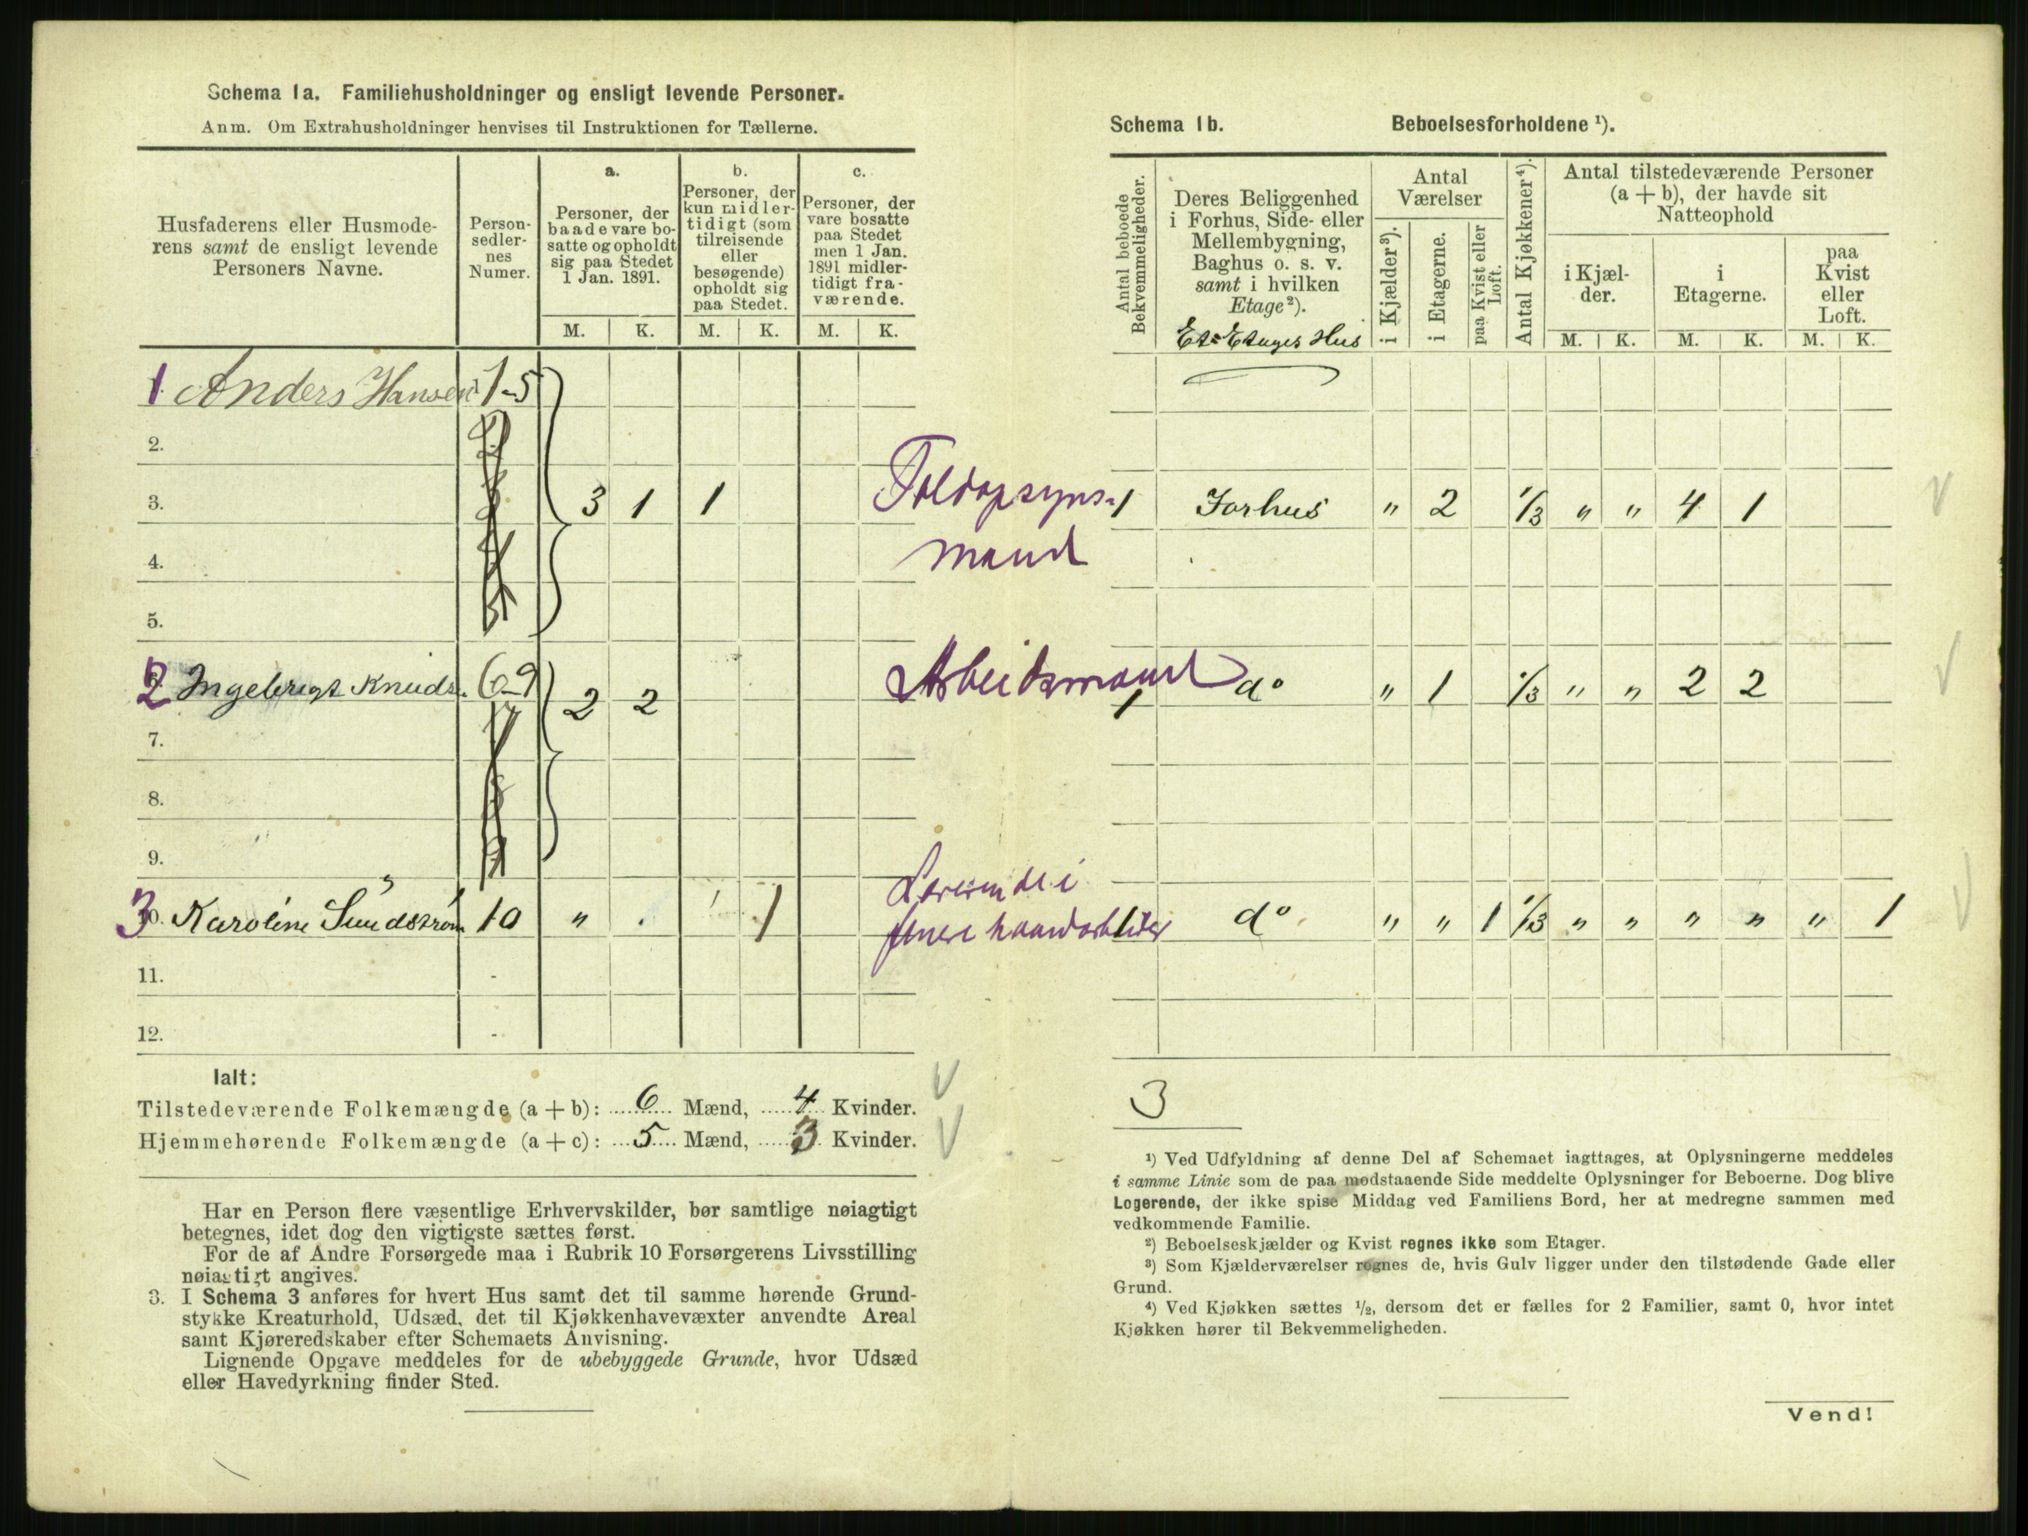 Schema 1a. Familiehusholdninger og ensligt levende Personer.
Anm. Om Extrahusholdninger henvises til Instruktionen for Tællerne.
Husfaderens eller Husmode-
rens samt de ensligt levende
Personers Navne.
Person-
sedler-
nes
Numer.
a.
Personer, der
baade vare bo-
satte og opholdt
sig paa Stedet
1 Jan. 1891.
b.
Personer, der
kun midler-
tidigt (som
tilreisende
eller
besøgende)
opholdt sig
paa Stedet.
c.
Personer, der
vare bosatte
paa Stedet
men 1 Jan.
1891 midler-
tidigt fra-
værende.
M. K. M. K. M. K.
1 Anders Hansen 1-5
2.
3. 3 1 1 Toldopsyns-
4. mand
5.
2 Ingebrigt Knuds. 6-9 2 2 Arbeidsmand
7.
8.
9.
3 10. Karoline Sundstrøm 10 " . 1
finere haandarbeider
11.
12.
Ialt:
Tilstedeværende Folkemængde (a + b): 6 Mænd, 4 Kvinder.
Hjemmehørende Folkemængde (a + c): 5 Mænd, 3 Kvinder.
Har en Person flere væsentlige Erhvervskilder, bør samtlige nøiagtigt
betegnes, idet dog den vigtigste sættes først.
For de af Andre Forsørgede maa i Rubrik 10 Forsørgerens Livsstilling
nøiagtigt angives.
3. I Schema 3 anføres for hvert Hus samt det til samme hørende Grund-
stykke Kreaturhold, Udsæd, det til Kjøkkenhavevæxter anvendte Areal
samt Kjøreredskaber efter Schemaets Anvisning.
Lignende Opgave meddeles for de ubebyggede Grunde, hvor Udsæd
eller Havedyrkning finder Sted.
Schema 1b. Beboelsesforholdene ¹).
Antal beboede
Bekvemmeligheder.
Deres Beliggenhed
i Forhus, Side- eller
Mellembygning,
Baghus o. s. v.
samt i hvilken
Etage²).
Et Etages Hus
Antal
Værelser
i Kjælder³).
i Etagerne.
paa Kvist eller
Loft.
Antal Kjøkkener⁴).
Antal tilstedeværende Personer
(a + b), der havde sit
Natteophold
i Kjæl-
der.
i
Etagerne.
paa
Kvist
eller
Loft.
M. K. M. K. M. K.
1 Forhus " 2 1/3 " " 4 1
1 do " 1 1/3 " " 2 2
1 do " " 1 1/3 " " " " " 1
3
¹) Ved Udfyldning af denne Del af Schemaet iagttages, at Oplysningerne meddeles
i samme Linie som de paa modstaaende Side meddelte Oplysninger for Beboerne. Dog blive
Logerende, der ikke spise Middag ved Familiens Bord, her at medregne sammen med
vedkommende Familie.
²) Beboelseskjælder og Kvist regnes ikke som Etager.
³) Som Kjælderværelser regnes de, hvis Gulv ligger under den tilstødende Gade eller
Grund.
⁴) Ved Kjøkken sættes ½, dersom det er fælles for 2 Familier, samt 0, hvor intet
Kjøkken hører til Bekvemmeligheden.
Vend!